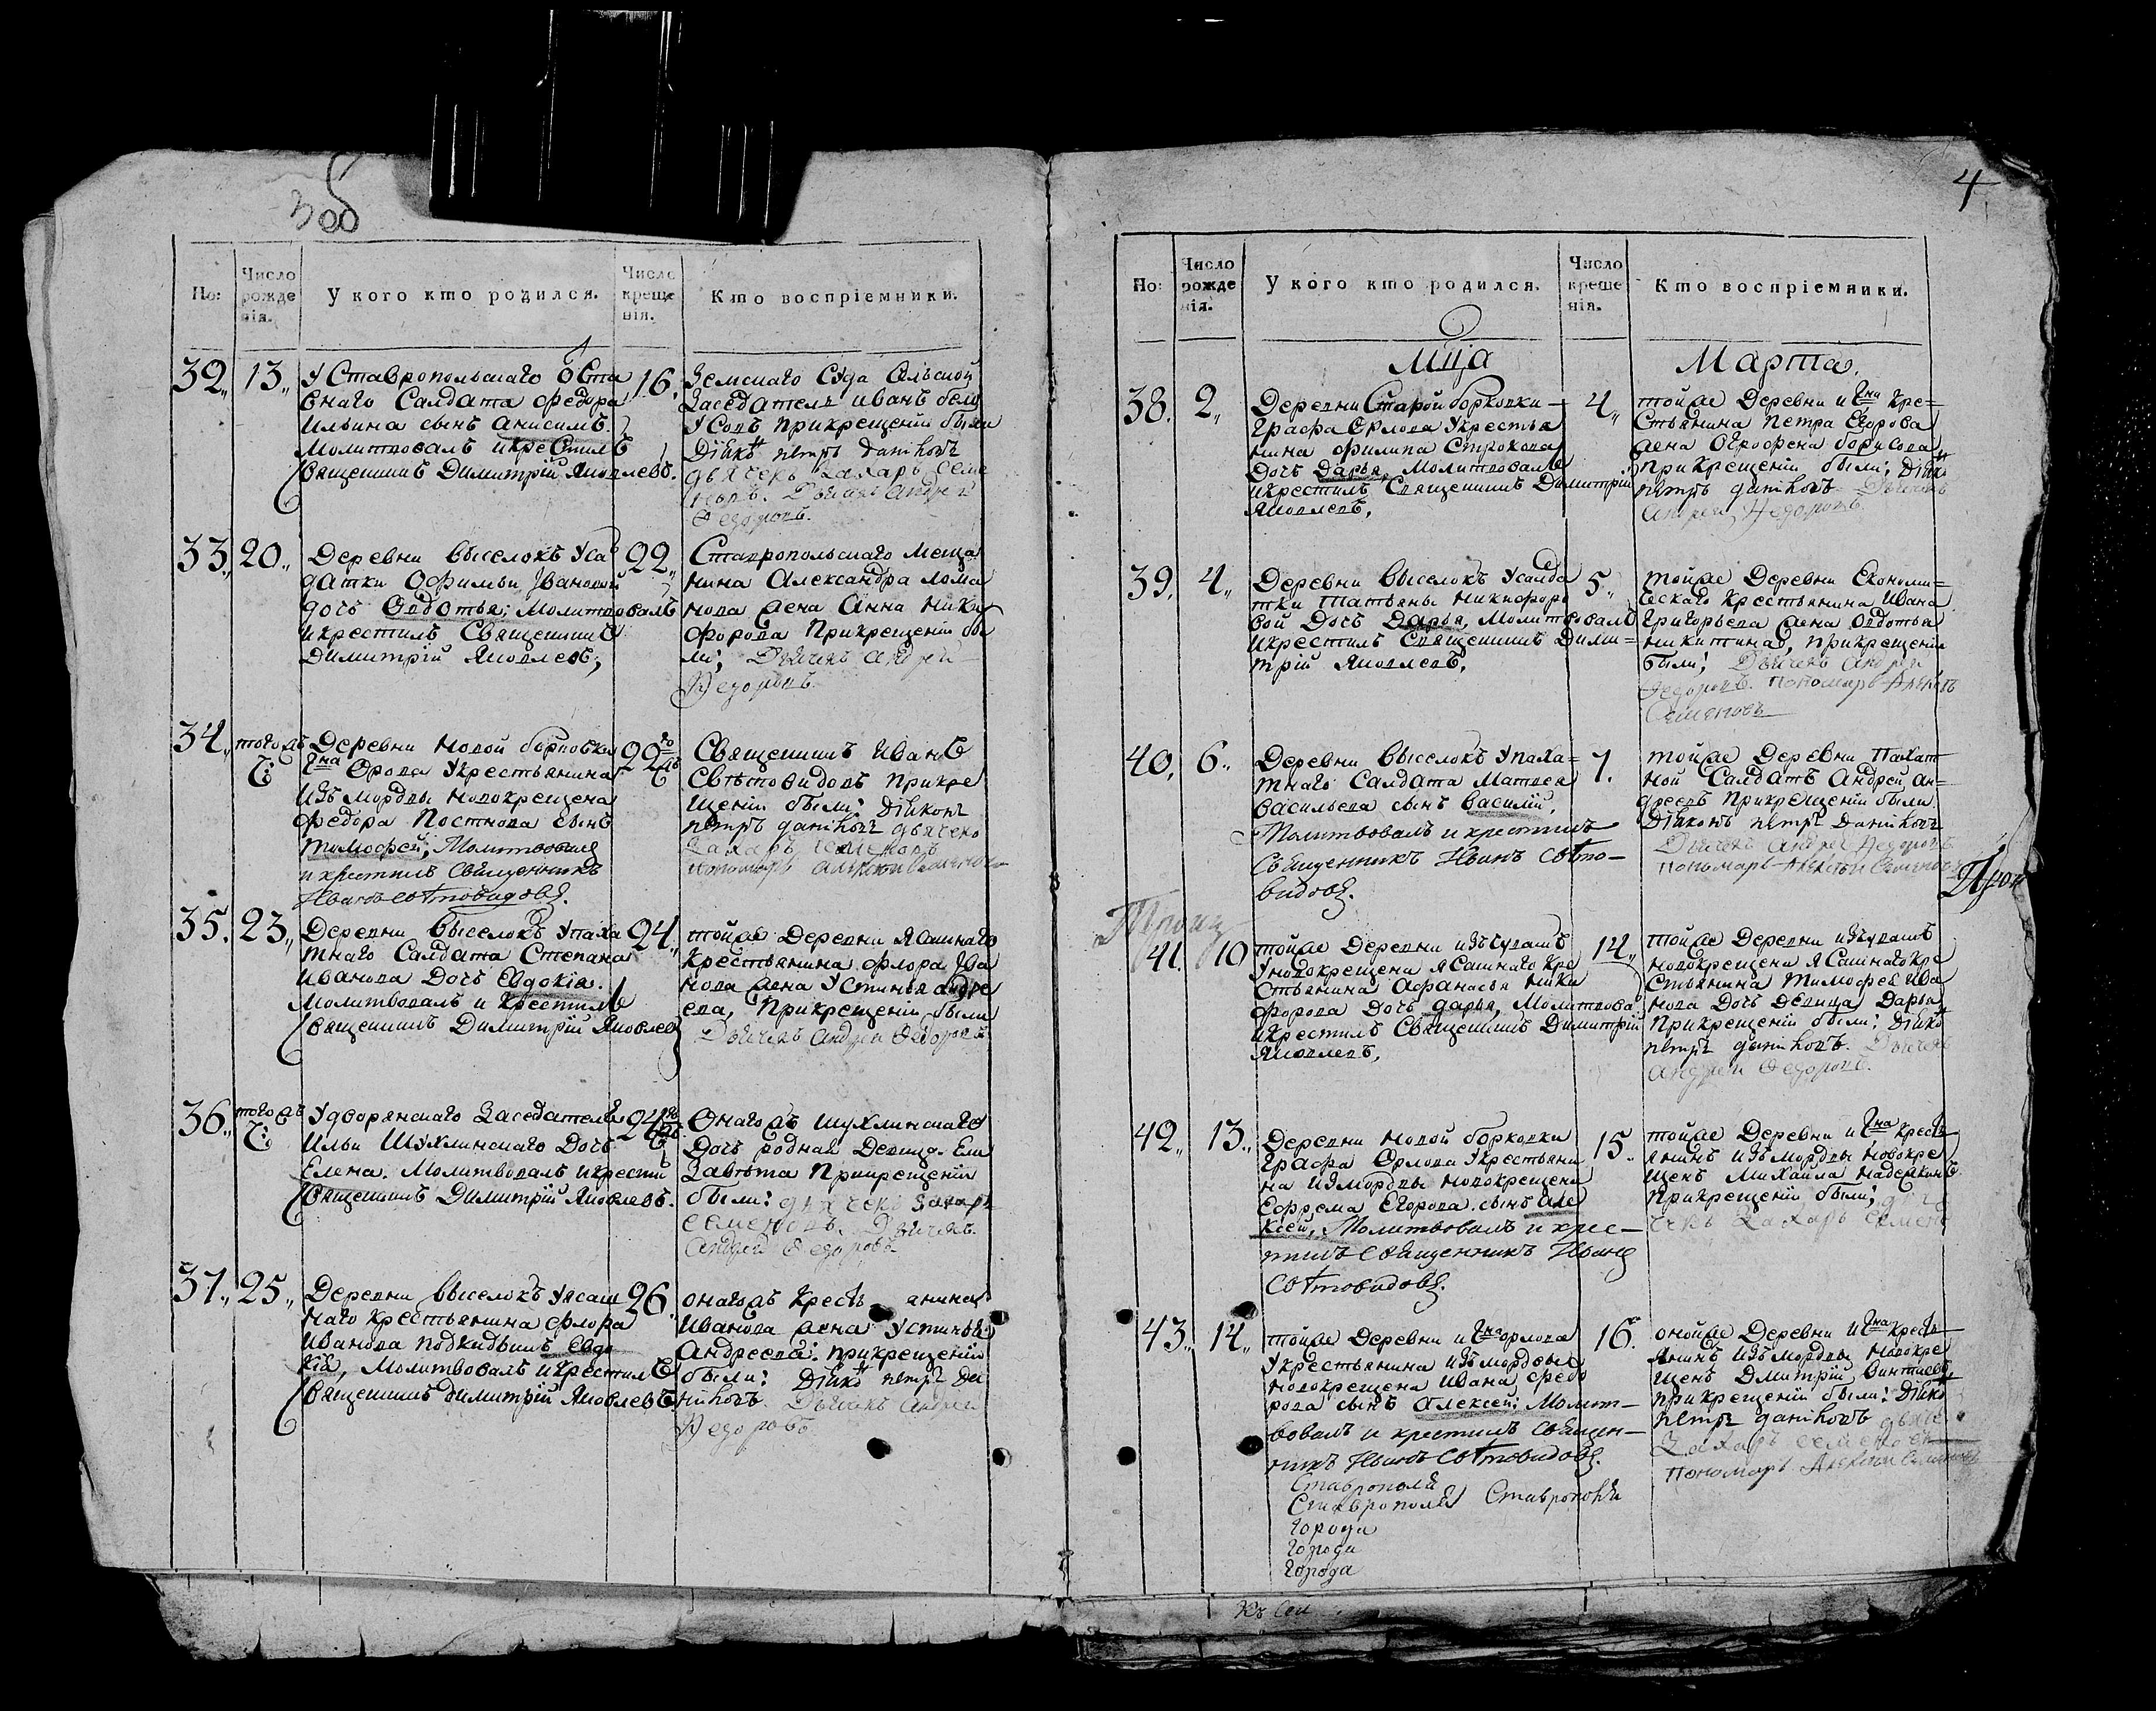 Зоб
Но:
Число рожденія.
У кого кто родился.
Число крещенія.
Кто воспріемники.
32,,
13,,
У Ставрополь­скаго
Салдата федора
Ильина сынъ анисимъ.
Молитвовалъ икрестилъ
Священникъ Димитрій Яковлевъ.
16.
Земскаго Суда
Заседатель иванъ
прикрещеніи были
петръ
дьячекъ Захаръ Семе
новъ. Дьячекъ андрей
Федоровъ.
33,,
20,,
Деревни Выселокъ Усал
датки Офимьи Ивановой
дочь Овдотья; Молитвовалъ
икрестилъ Священникъ
Димитрій Яковлевъ;
22,,
Ставропольскаго Меща
нина Александра
жена Анна Ники
форова Прикрещеніи бы
ли; Дьячекъ андрей
Федоровъ.
34,,
тогожъ
Ч:
Деревни Новой борковки
Орлова Укрестьянина
Изъ мордвы новокрещена
федора Постнова сынъ
тимофей; Молитвовалъ
и крестилъ Священникъ
Иванъ Свѣтовидовъ.
22
Священникъ Иванъ
Свѣтовидовъ прикре
щеніи были: Діаконъ
петръ дьячекъ
Захаръ семеновъ
пономарь алексѣй Семеновъ
35.
23,,
Деревни Выселокъ Упаха
тнаго Салдата Степана
Иванова Дочь Евдокіа.
Молитвовалъ и крестилъ
Священникъ Димитрій Яковлевъ
24,,
тойже Деревни Ясашнаго
крестьянина флора Ива
нова жена Устинья андре
ева, Прикрещеніи были
Дьячекъ Андрей Федоровъ
36,,
тогожъ
Ч:
Удворянскаго Заседателя
Ильи Шухлинскаго Дочь
Елена. Молитвовалъ икрести
Священникъ Димитрій Яковлевъ.
24
Онагожъ Шухлинскаго
Дочь родная Девица Ели
Завѣта Прикрещеніи
были: дьячекъ Захаръ
семеновъ. Дьячекъ
андрей Федоровъ
37,,
25,,
Деревни Выселокъ Уясаш
наго крестьянина флора
Иванова подкидышъ евдо
кіа, Молитвовалъ икрестилъ
Священникъ димитрій Яковлевъ.
26.
онагожъ кресть янина
Иванова жена Устинья
андреева: прикрещеніи
были: петръ
Дьячекъ андрей
Федоровъ
4
Но:
Число рожденія.
У кого кто родился.
Число крещенія.
Кто воспріемники.
Мца
Марта.
38.
2,,
Деревни Старой борковки
Графа Орлова Укрестья
нина филипа Строкова
Дочь Дарья, Молитвовалъ
икрестилъ Священникъ Димитрій
Яковлевъ,
4,,
тойже Деревни и кре=
стьянина Петра Егорова
жена Огрофена борисова
прикрещеніи были;
петръ Дьячекъ
андрей Федоровъ
39.
4,,
Деревни Выселокъ Усалда
тки татьяны никифоро
вой Дочь Дарья, Молитвовалъ
икрестилъ Священникъ Дими=
трій Яковлевъ.
5,,
тойже Деревни Економи=
ческаго крестьянина Ивана
Григорьева жена Овдотья
никитина, прикрещеніи
были; Дьячекъ андрей
Федоровъ. пономарь Алексѣй
Семеновъ
40,
6,,
Деревни Выселокъ Упаха=
тнаго Салдата Матвея
Васильева сынъ Василій.
Молитвовалъ и крестилъ
Священникъ Иванъ Свѣто-
видовъ.
7.
тойже Деревни Пахат
ной Салдатъ Андрей ан-
дреевъ прикрещеніи были
Діаконъ петръ
Дьячекъ Андрей Федоровъ
пономарь Алексѣй Семеновъ
41.
10
тойже Деревни изъчувашъ
Уновокрещена Ясашнаго кре
стьянина Афанасья Ники
форова Дочь дарья, Молитвова
икрестилъ Священникъ Димитрій
Яковлевъ,
14,,
тойже Деревни изъчувашъ
новокрещена Ясашнаго кре
стьянина тимофея Ива
нова Дочь Девица Дарья
прикрещеніи были:
петръ Дьячекъ
андрей Федоровъ.
42,,
13,,
Деревни новой борковки
Графа Орлова Укрестьяни
на измордвы новокрещена
Ефрема Егорова сынъ але
ксей, Молитвовалъ и кре-
стилъ священникъ Иванъ
Свѣтовидовъ.
15.
тойже Деревни и кресть
янинъ изъмордвы новокре
щенъ Михаила Надеркинъ
прикрещеніи были; дья
чекъ Захаръ Семен
43,,
14,,
тойже Деревни и орлова
Укрестьянина изъмордвы
новокрещена Ивана федо
рова сынъ алексей: Молит-
вовалъ и крестилъ священ-
никъ Иванъ Свѣтовидовъ.
16.
онойже Деревни и кресть
янинъ изъ мордвы новокре
щенъ Дмитрій
прикрещеніи были:
петръ
Захаръ семеновъ
пономарь Алексѣй Семеновъ
Ставрополя
Ставрополя Ставрополя
города
города
города